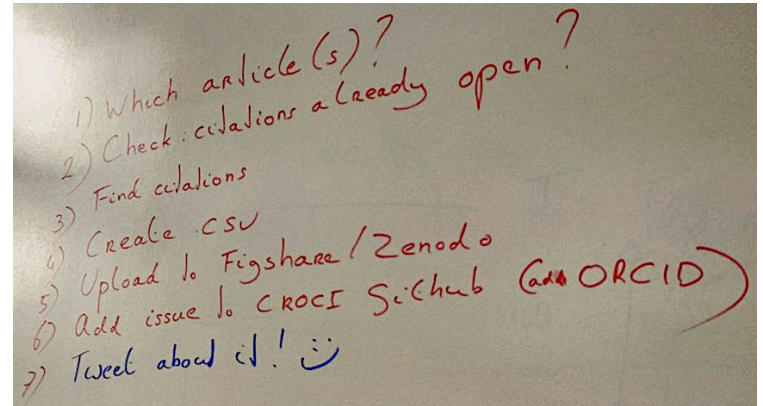 1) Which article(s)?
2) Check: citations already open?
3) Find citations
4) Create .csv
5) Upload to Figshare/Zenodo
6) Add issue to CROCI GitHub (add ORCID)
7) Tweet about it! :)